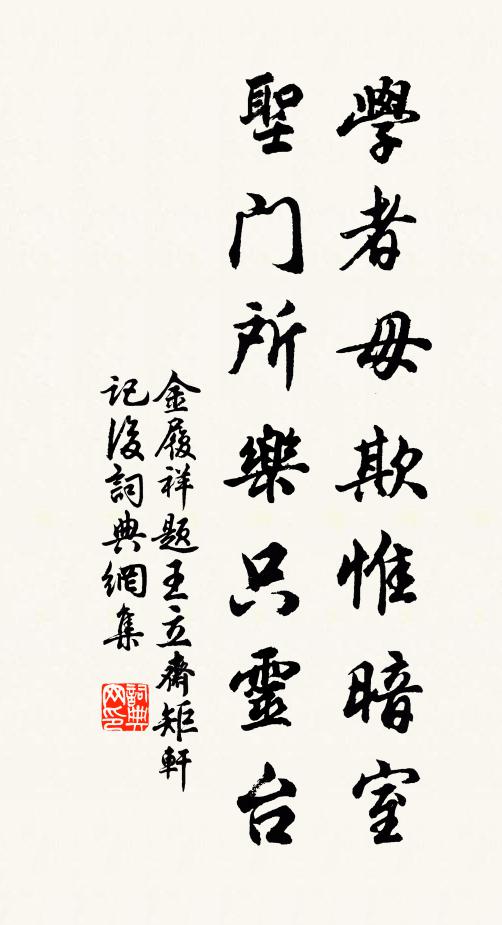 學者毋欺惟暗室
聖門所樂只靈台
金履祥題王立齋矩軒
記後詞典網集
詞典网印